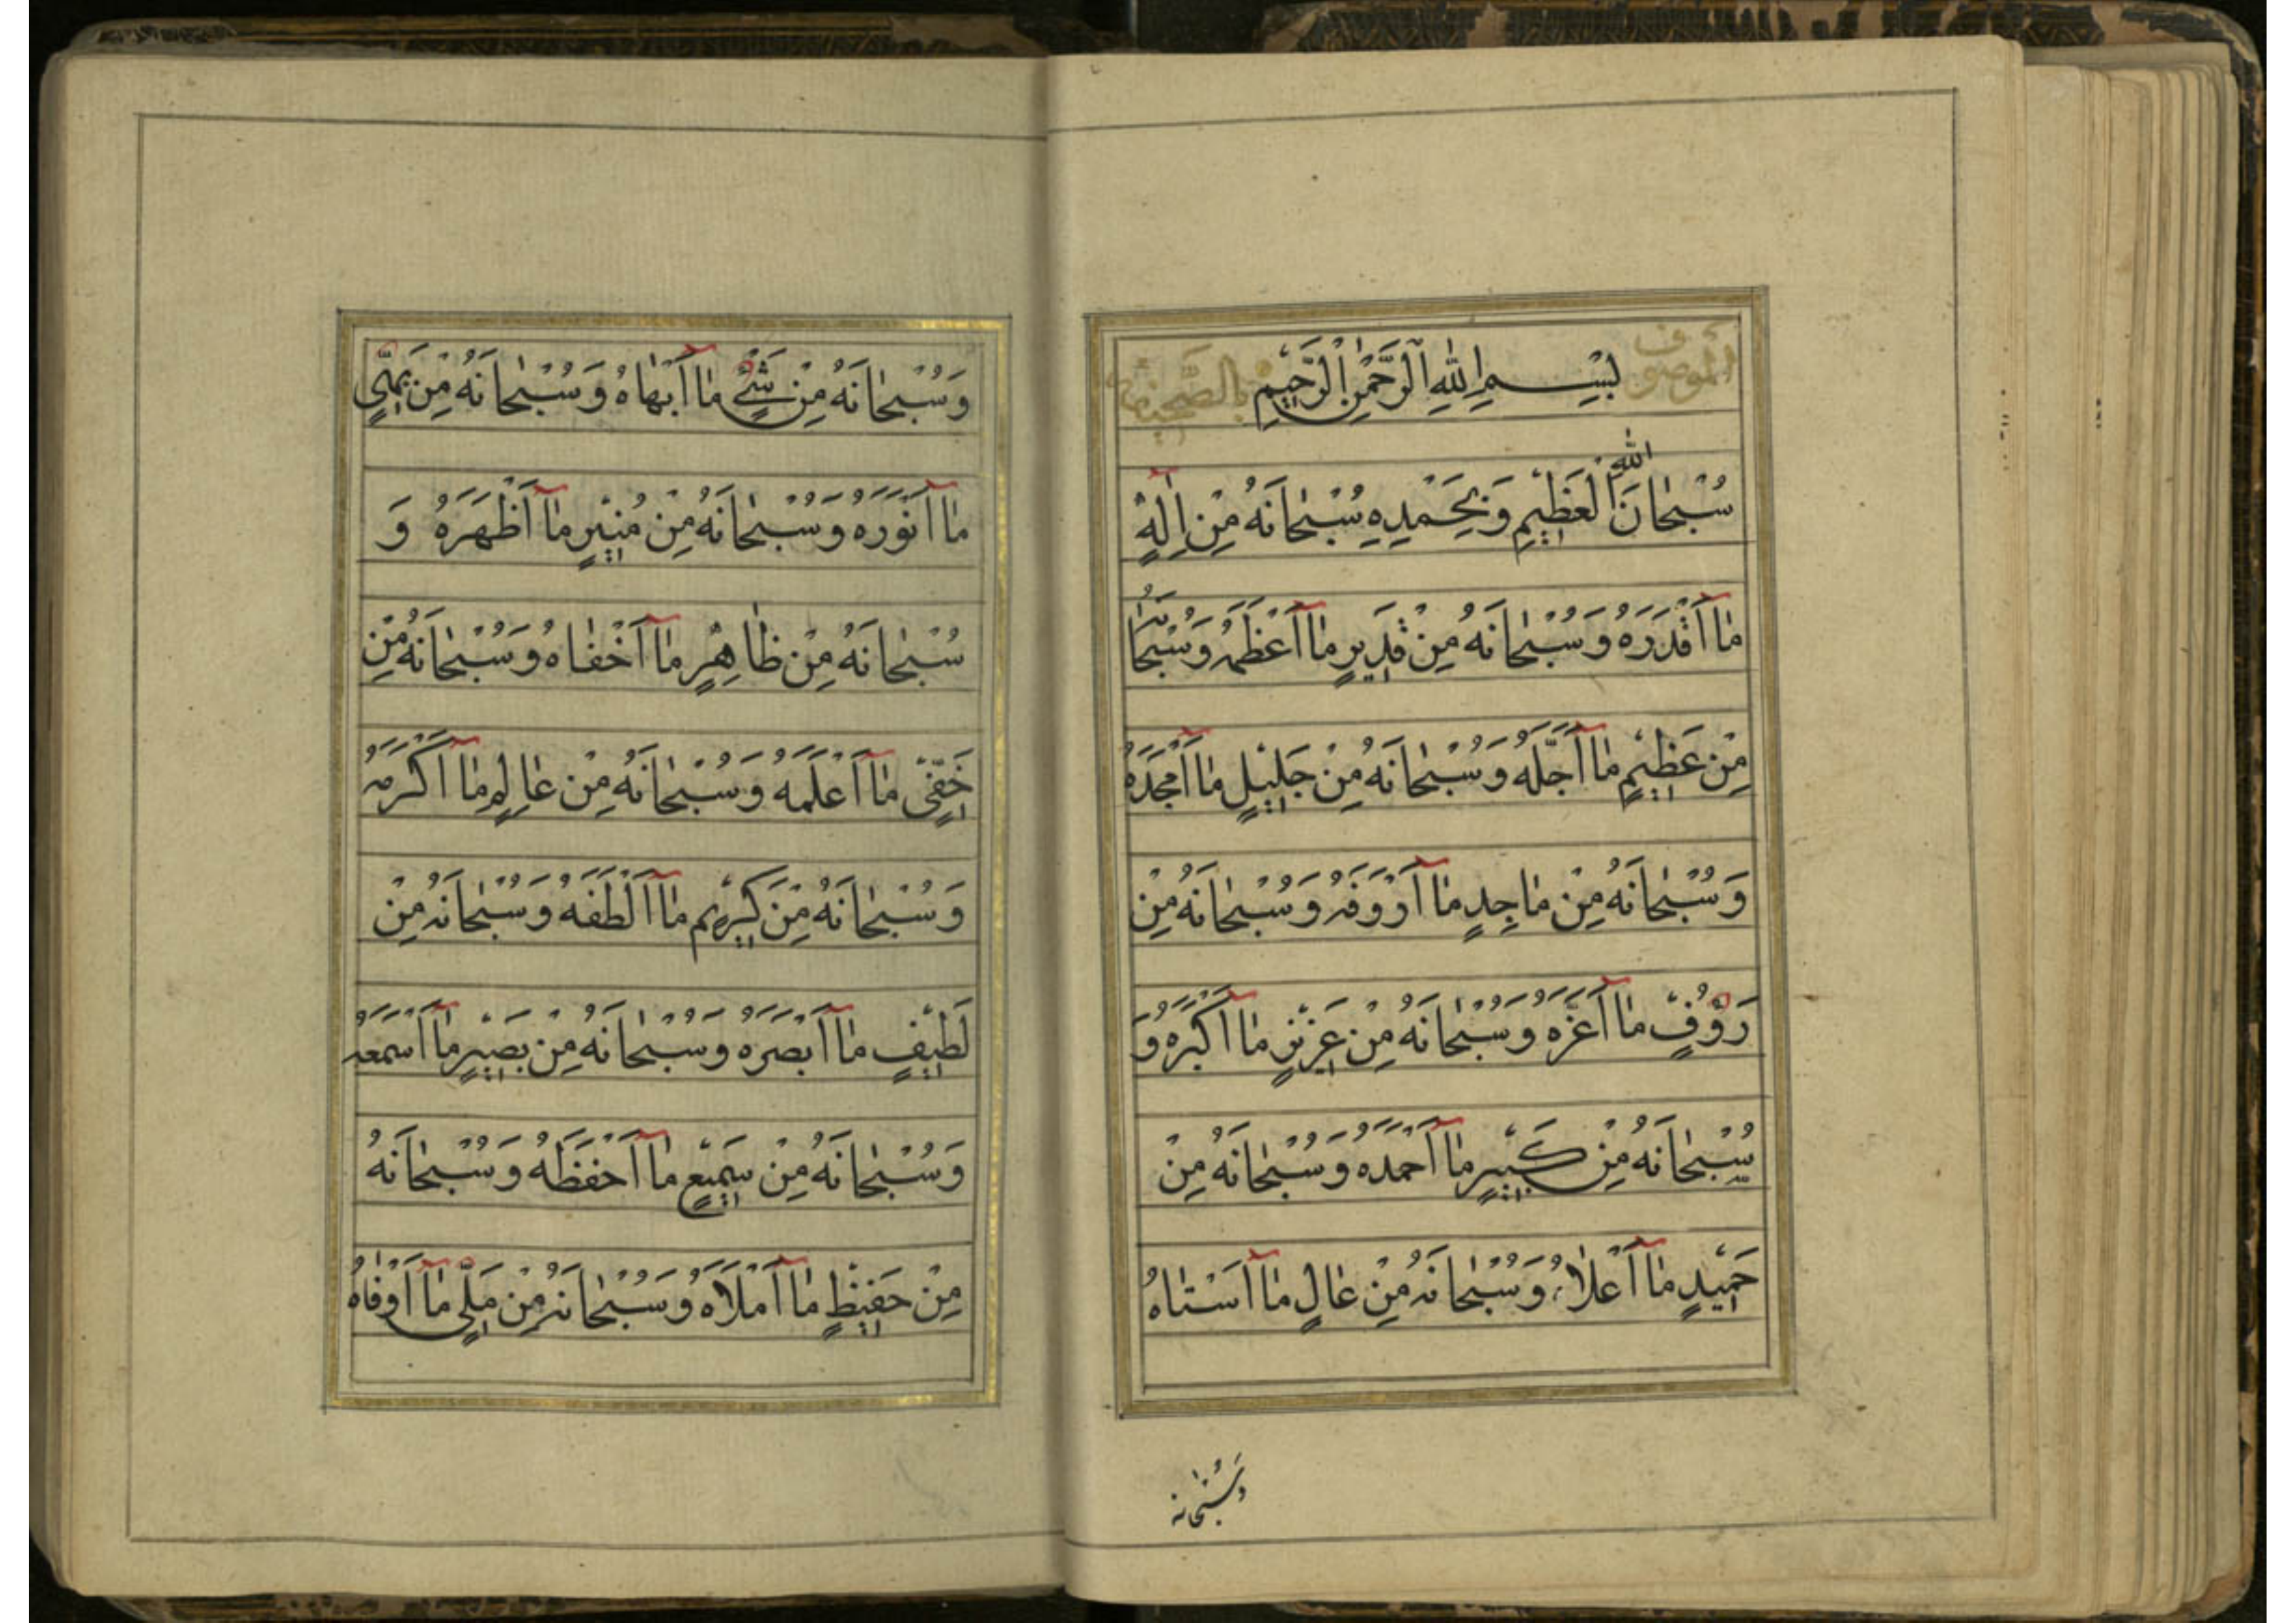 الموصوف بِسْمِ اللهِ الرَّحْمٰنِ الرَّحِيْمِ بالصحيفة
سُبْحٰانَ اللّٰهِ الْعَظِيْمِ وَبِحَمْدِهِ سُبْحٰانَهُ مِنْ اِلٰهٍ
مٰا اَقْدَرَهُ وَسُبْحٰانَهُ مِنْ قَدِيرٍ مٰا اَعْظَمَهُ وَسُبْحٰانَهُ
مِنْ عَظِيْمٍ مٰا اَجَلَّهُ وَسُبْحٰانَهُ مِنْ جَلِيْلٍ مٰا اَمْجَدَهُ
وَسُبْحٰانَهُ مِنْ مٰاجِدٍ مٰا اَرْوَفَهُ وَسُبْحٰانَهُ مِنْ
رَؤُفٍ مٰا اَعَزَّهُ وَسُبْحٰانَهُ مِنْ عَزِيْزٍ مٰا اَكْبَرَهُ وَ
سُبْحٰانَهُ مِنْ كَبِيْرٍ مٰا اَحْمَدَهُ وَسُبْحٰانَهُ مِنْ
حَمِيْدٍ مٰا اَعْلاٰهُ وَسُبْحٰانَهُ مِنْ عٰالٍ مٰا اَسْنٰاهُ
وَسُبْحٰانَهُ
وَسُبْحٰانَهُ مِنْ سَنِيٍّ مٰا اَبْهٰاهُ وَسُبْحٰانَهُ مِنْ بَهِيٍّ
مٰا اَنْوَرَهُ وَسُبْحٰانَهُ مِنْ مُنِيْرٍ مٰا اَظْهَرَهُ وَ
سُبْحٰانَهُ مِنْ ظٰاهِرٍ مٰا اَخْفٰاهُ وَسُبْحٰانَهُ مِنْ
خَفِيٍّ مٰا اَعْلَمَهُ وَسُبْحٰانَهُ مِنْ عٰالِمٍ مٰا اَكْرَمَهُ
وَسُبْحٰانَهُ مِنْ كَرِيْمٍ مٰا اَلْطَفَهُ وَسُبْحٰانَهُ مِنْ
لَطِيْفٍ مٰا اَبْصَرَهُ وَسُبْحٰانَهُ مِنْ بَصِيْرٍ مٰا اَسْمَعَهُ
وَسُبْحٰانَهُ مِنْ سَمِيْعٍ مٰا اَحْفَظَهُ وَسُبْحٰانَهُ
مِنْ حَفِيْظٍ مٰا اَمْلَاَهُ وَسُبْحٰانَهُ مِنْ مَلِيٍّ مٰا اَوْفٰاهُ